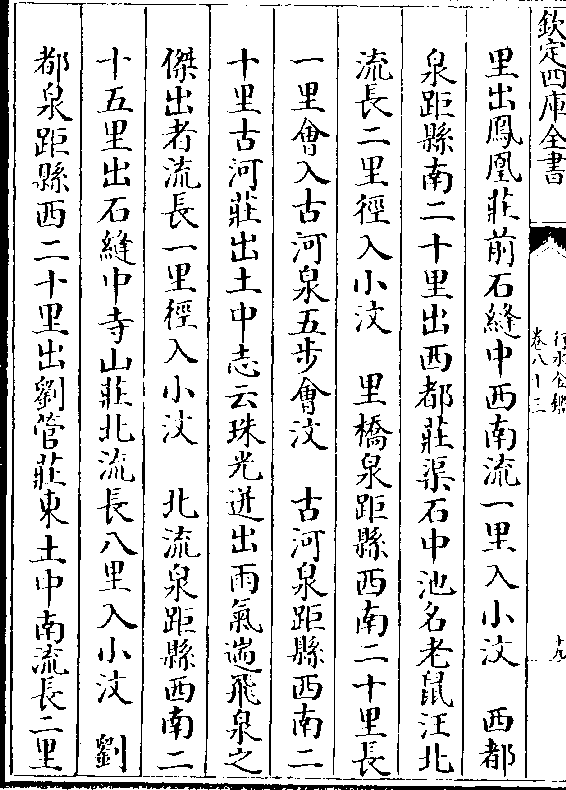 欽定四庫全書
行水金鑑
卷八十三
十九
里出鳳凰莊前石縫中西南流一里入小汶　西都
泉距縣南二十里出西都莊渠石中池名老鼠汪北
流長二里徑入小汶　里橋泉距縣西南二十里長
一里會入古河泉五步會汶　古河泉距縣西南二
十里古河莊出土中志云珠光迸出雨氣湍飛泉之
傑出者流長一里徑入小汶　北流泉距縣西南二
十五里出石縫中寺山莊北流長八里入小汶　劉
都泉距縣西二十里出劉管莊東土中南流長二里